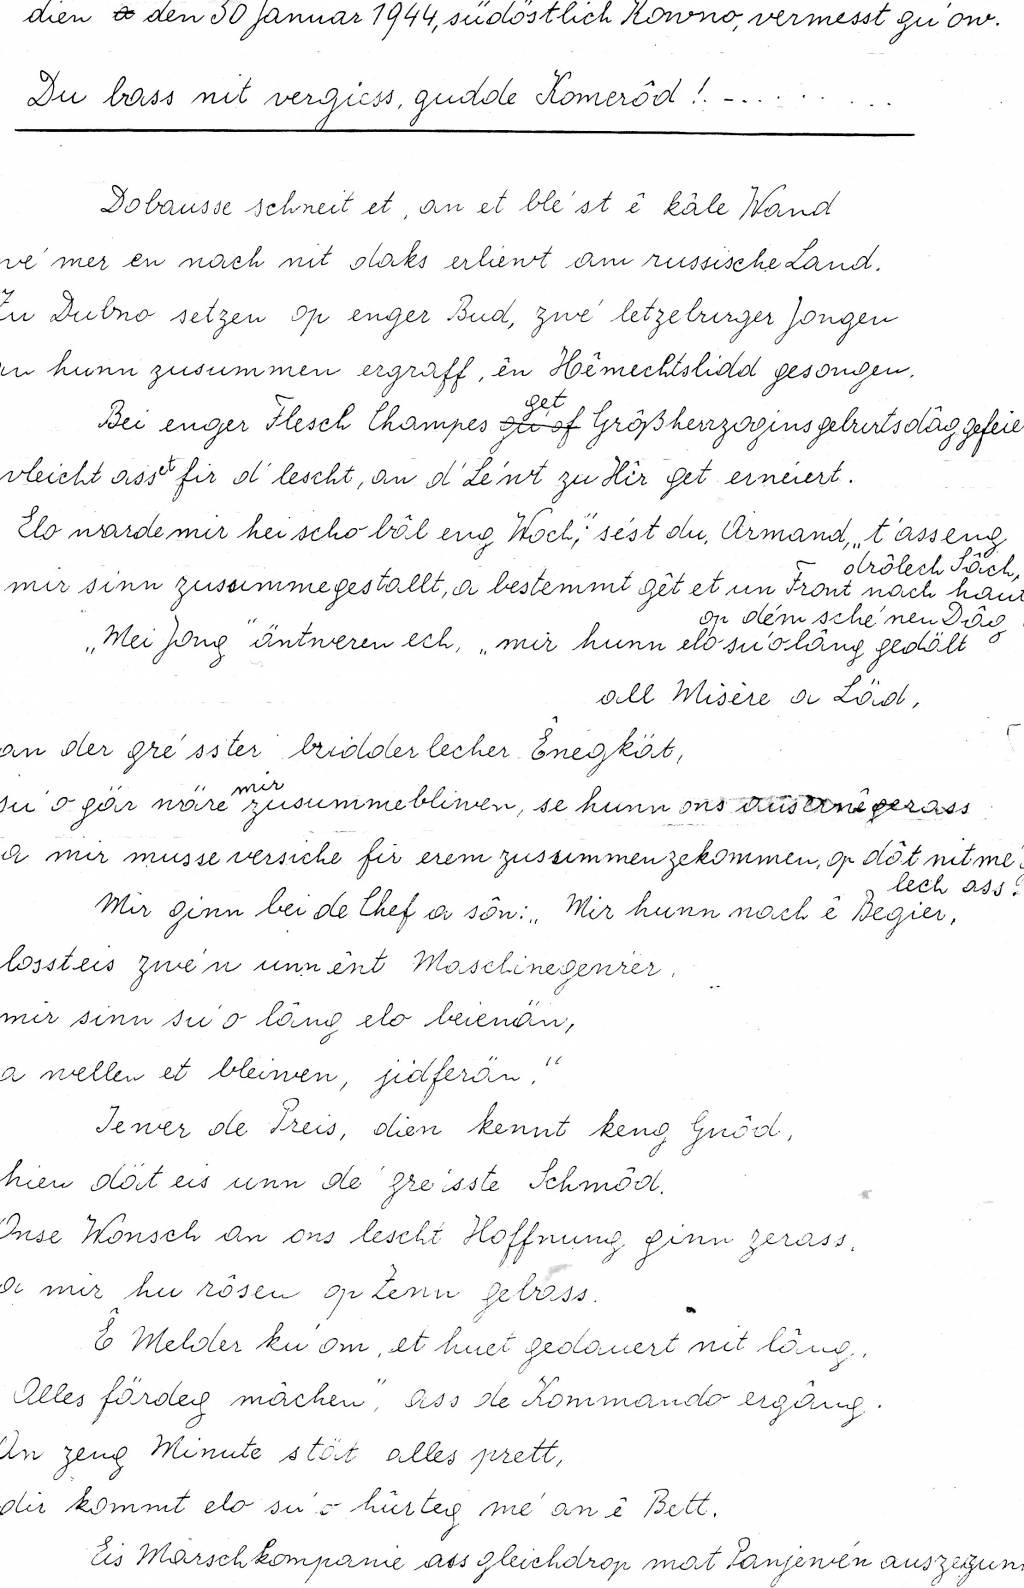 dien den 30 Januar 1944, südöstlich Kowno, vermesst gu'ow.
Du bass nit vergiess, gudde Komerôd ! . - . . . . . . . .
Dobausse schneit et, an et blé'st ê kâle Wand
wé mer en nach nit daks erliewt am russische Land.
Zu Dubno setzen op enger Bud, zwé letzeburger Jongen
an hunn zusummen ergraff, ên Hêmechtslidd gesongen.
Bei enger Flesch Champes get Größherzoginsgeburtsdâg gefeie
vleicht ass et fir d'lescht, an d'Lé'wt zu Hir get erneiert.
Elo warde mir hei scho bôl eng Woch," sést du, Armand, „t'ass eng
drôlech Sâch,
mir sinn zusummegestallt, a bestemmt gêt et un Front nach haut
op dém sché'nen Dâg
„Mei Jong" äntweren ech, „mir hunn elo su'o lâng gedölt
all Misère a Läd,
an der gré'sster bridderlecher Ênegkät,
su'o gär wäre mir zusummebliwen, se hunn ons ausernêgerass
a mir musse versiche fir erem zusummenzekommen, op dât nit mé'
lech ass.
Mir ginn bei de Chef a sôn: „Mir hunn nach ê Begier,
losst eis zwé'n unn ênt Maschinegewier,
mir sinn su'o lâng elo beienän,
a wellen et bleiwen, jidferän."
Iewer de Preis, dien kennt keng Gnôd,
hien dät eis unn de' gréisste Schmôd.
Onse Wonsch an ons lescht Hoffnung ginn zerass,
a mir hu rôsen op Zenn gebass.
Ê Melder ku'om, et huet gedauert nit lâng,
Alles färdeg mâchen", ass de Kommando ergâng.
An zeng Minute stät alles prett,
dir kommt elo su'o hürteg mé' an ê Bett.
Eis Marschkompanie ass gleichdrop mat Panjewé'n auszezunn